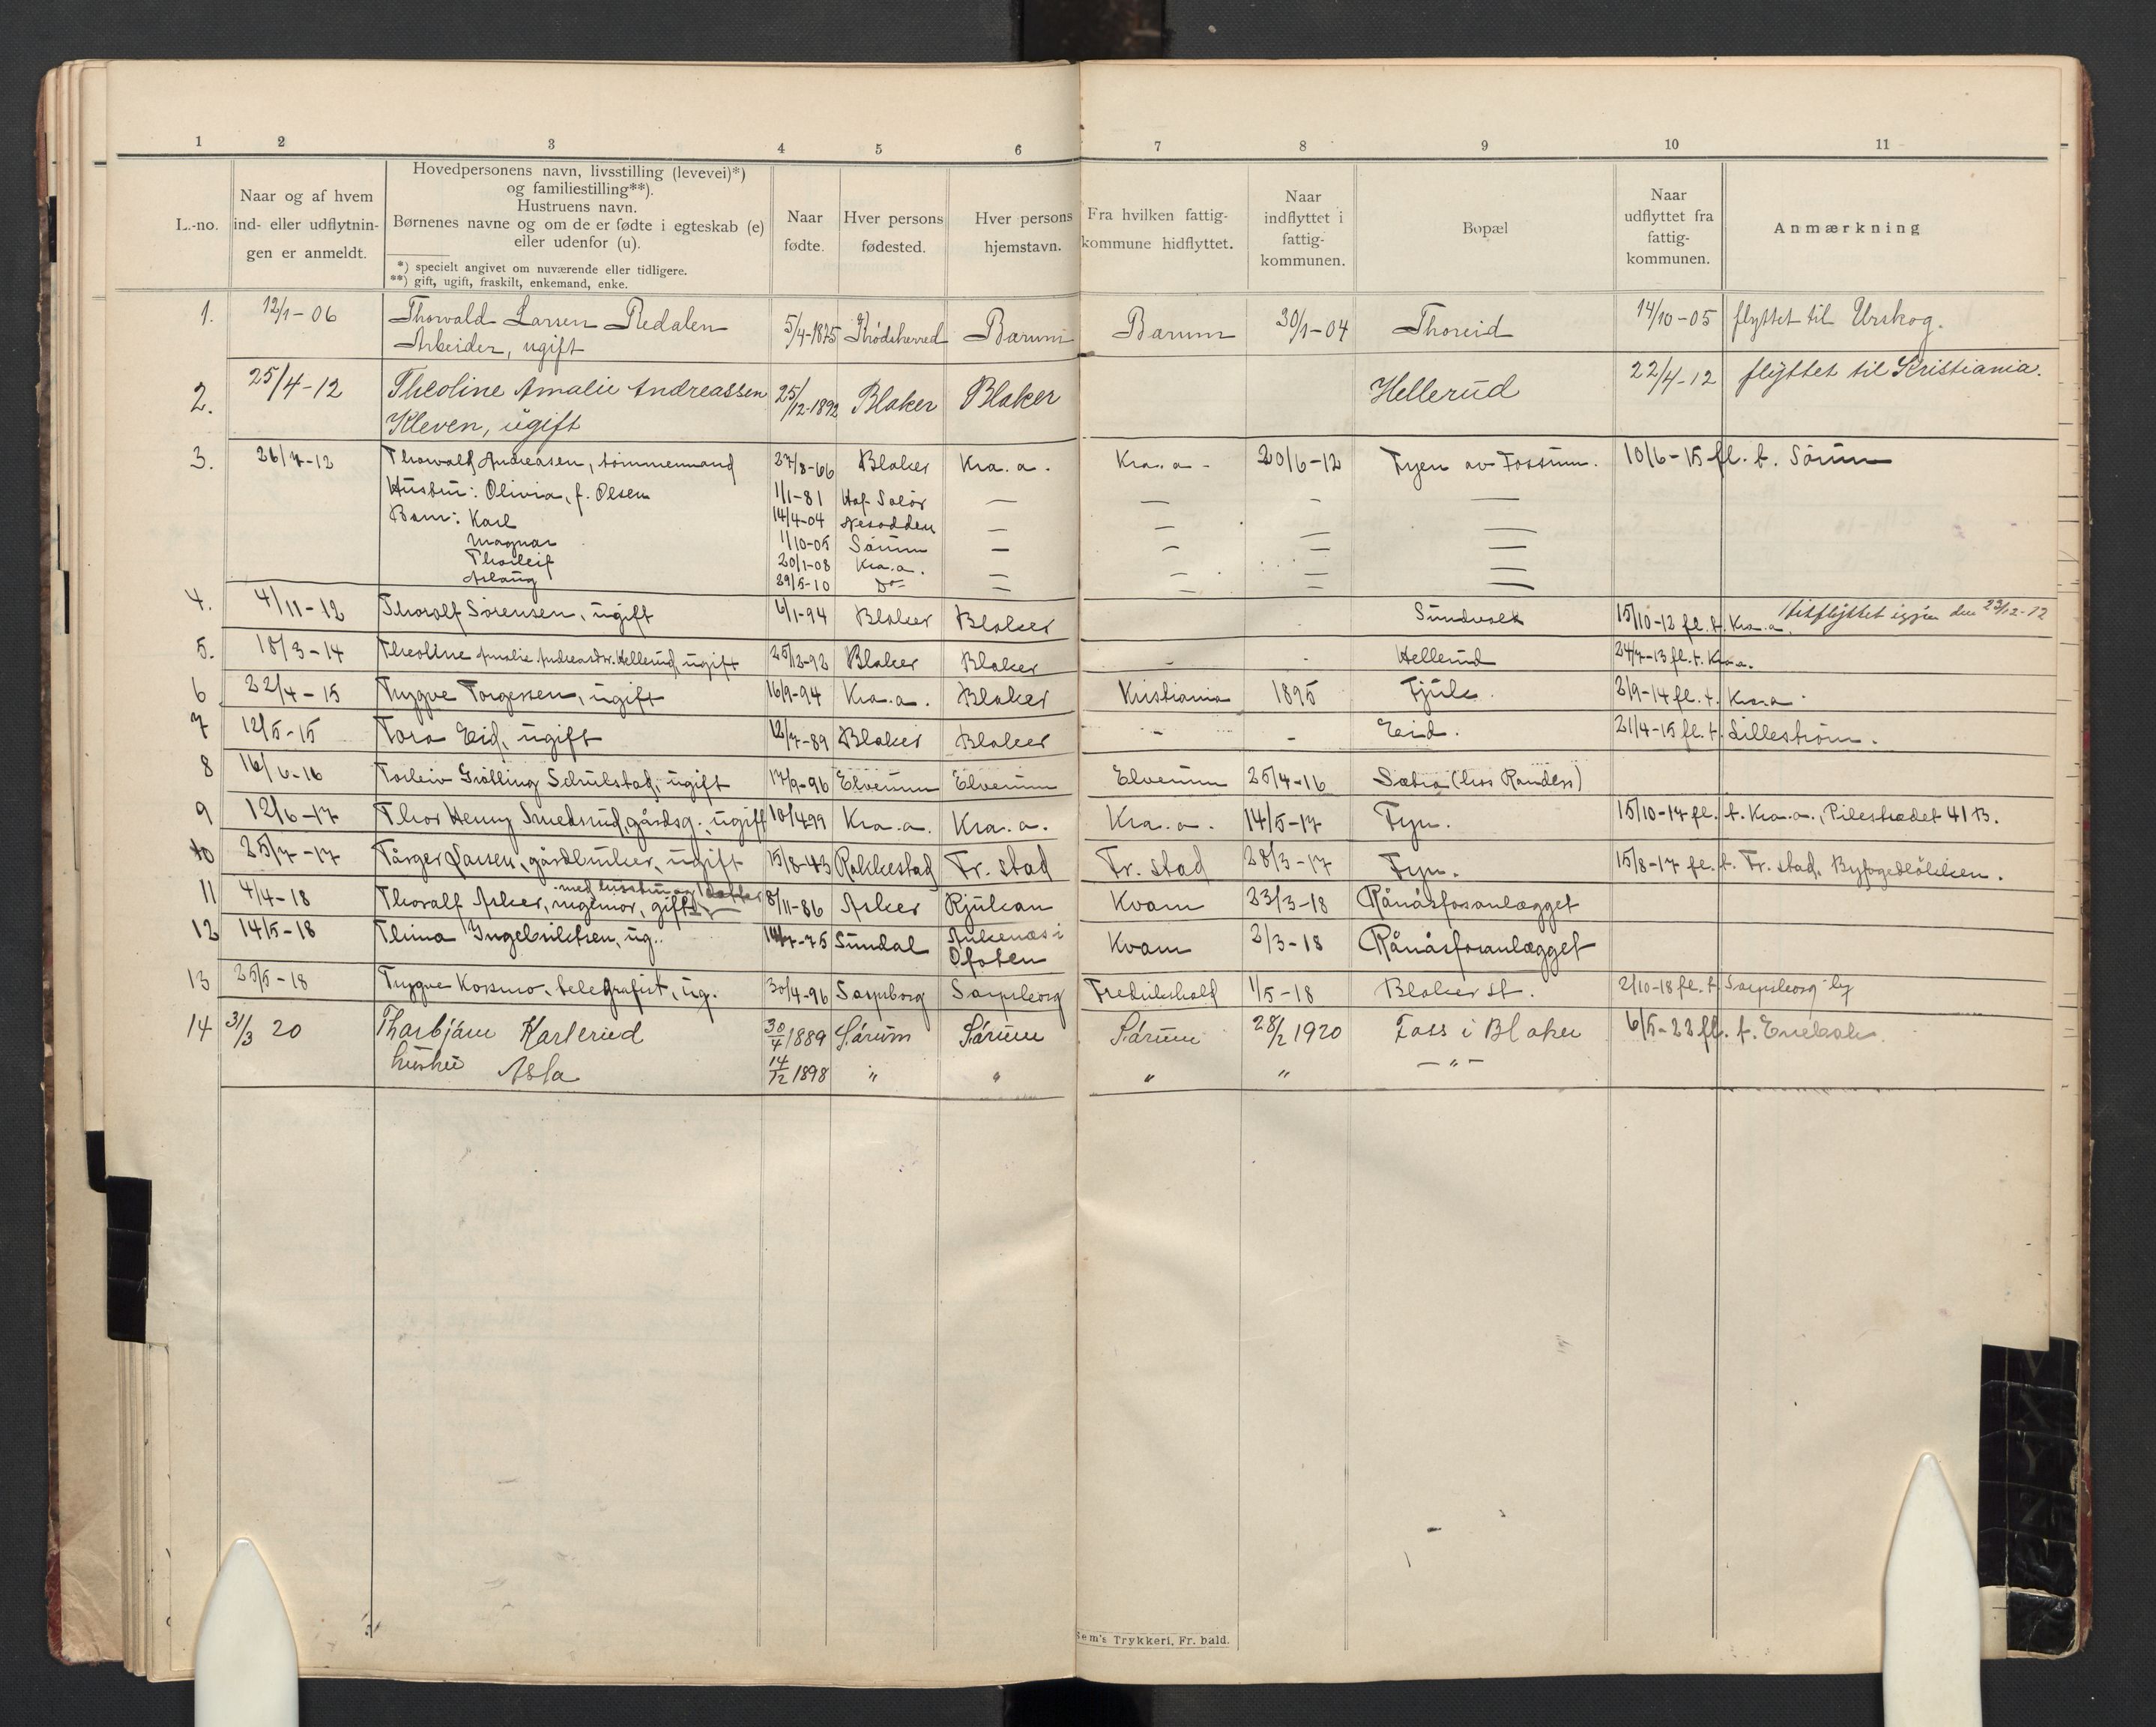 1 2 3 4 5 6 7 8 9 10 11
L.-no.
Naar og af hvem
ind- eller udflytnin-
gen er anmeldt.
Hovedpersonens navn, livsstilling (levevei)*)
og familiestilling**).
Hustruens navn.
Børnenes navne og om de er fødte i egteskab (e)
eller udenfor (u).
*) specielt angivet om nuværende eller tidligere.
**) gift, ugift, fraskilt, enkemand, enke.
Naar
fødte.
Hver persons
fødested.
Hver persons
hjemstavn.
Fra hvilken fattig-
kommune hidflyttet.
Naar
indflyttet i
fattig-
kommunen.
Bopæl
Naar
udflyttet fra
fattig-
kommunen.
Anmærkning
1. 12/1-06 Thorvald Larsen Redalen 5/4-1875 Krødsherred Barum Barum 30/1-04 Thoreid 14/10-05 flyttet til Urskog.
Arbeider, ugift
2. 25/4-12 Theoline Amalie Andreassen 25/12-1892 Blaker Blaker Hellerud 22/4-12 flyttet til Kristiania.
Kleven, ugift
3. 26/7-12 Thorvald Andreasen, tømmermand 27/8-66 Blaker Kra.a. Kra.a- 20/6-12 Fyen av Fossum. 10/6-15 fl. t. Sørum
Hustru: Olivia, f. Olsen 1/1-81 Hof Solør — — - —
Barn: Karl 14/4-04 Nesodden — — — —
Magnar 1/10-05 Sørum — — — —
Thorleif 20/1-08 Kra.a. — — — —
Aslaug 29/5-10 Do — — — —
4. 4/11-12 Thoralf Sørensen, ugift 6/1-94 Blaker Blaker Sundvolt 15/10-12 fl. t. Kra.a. Hitflyttet igjen den 23/12-12
5. 18/3-14 Theoline Amalie Andreasdtr. Hellerud, ugift 25/12-92 Blaker Blaker - - Hellerud 24/7-13 fl. t. Kra.a.
6 22/4-15 Trygve Torgersen, ugift 16/9-94 Kra.a. Blaker Kristiania 1895 Fjule. 2/9-14 fl. t. Kra.a.
7 12/5-15 Tora Eid, ugift 12/7-89 Blaker Blaker - - Eid. 21/4-15 fl. t. Lillestrøm.
8 16/6-16 Torleiv Grølling Schulstad, ugift 17/9-96 Elverum Elverum Elverum 25/4-16 Sætra (hos Randers)
9 12/6-17 Thor Henry Smedsrud, gårdsg., ugift 10/4 99 Kra.a. Kra.a. Kra.a. 14/5-17 Fyn. 15/10-17 fl. t. Kra.a., Pilestrædet 41 B.
10 25/7-17 Tårger Larsen, gårdbruker, ugift 15/8-43 Rakkestad Fr. stad Fr. stad 28/3-17 Fyn. 15/8-17 fl. t. Fr. stad, Byfogedløkken.
11 4/4-18 Thoralf Asker, ingeniør, gift med hustru og 1 datter 8/11-86 Asker Rjukan Kvam 23/3-18 Rånåsfosanlægget
12 14/5-18 Thina Ingebriktsen, ug.. 14/7-75 Sundal Ankenæs i Ofoten Kvam 2/3-18 Rånåsfosanlægget
13 25/5-18 Trygve Kosmo, telegrafist, ug. 30/4-96 Sarpsborg Sarpsborg Fredrikshald 1/5-18 Blaker st. 2/10-18 fl. t. Sarpsborg by
14 31/3 20 Thorbjørn Karterud 30/4 1889 Sørum Sørum Sørum 28/2 1920 Foss i Blaker 6/5-22 fl. t. Enebak.
hustru Asta 14/12 1898 " " " " — " —
Sem's Trykkeri, Fr. hald.